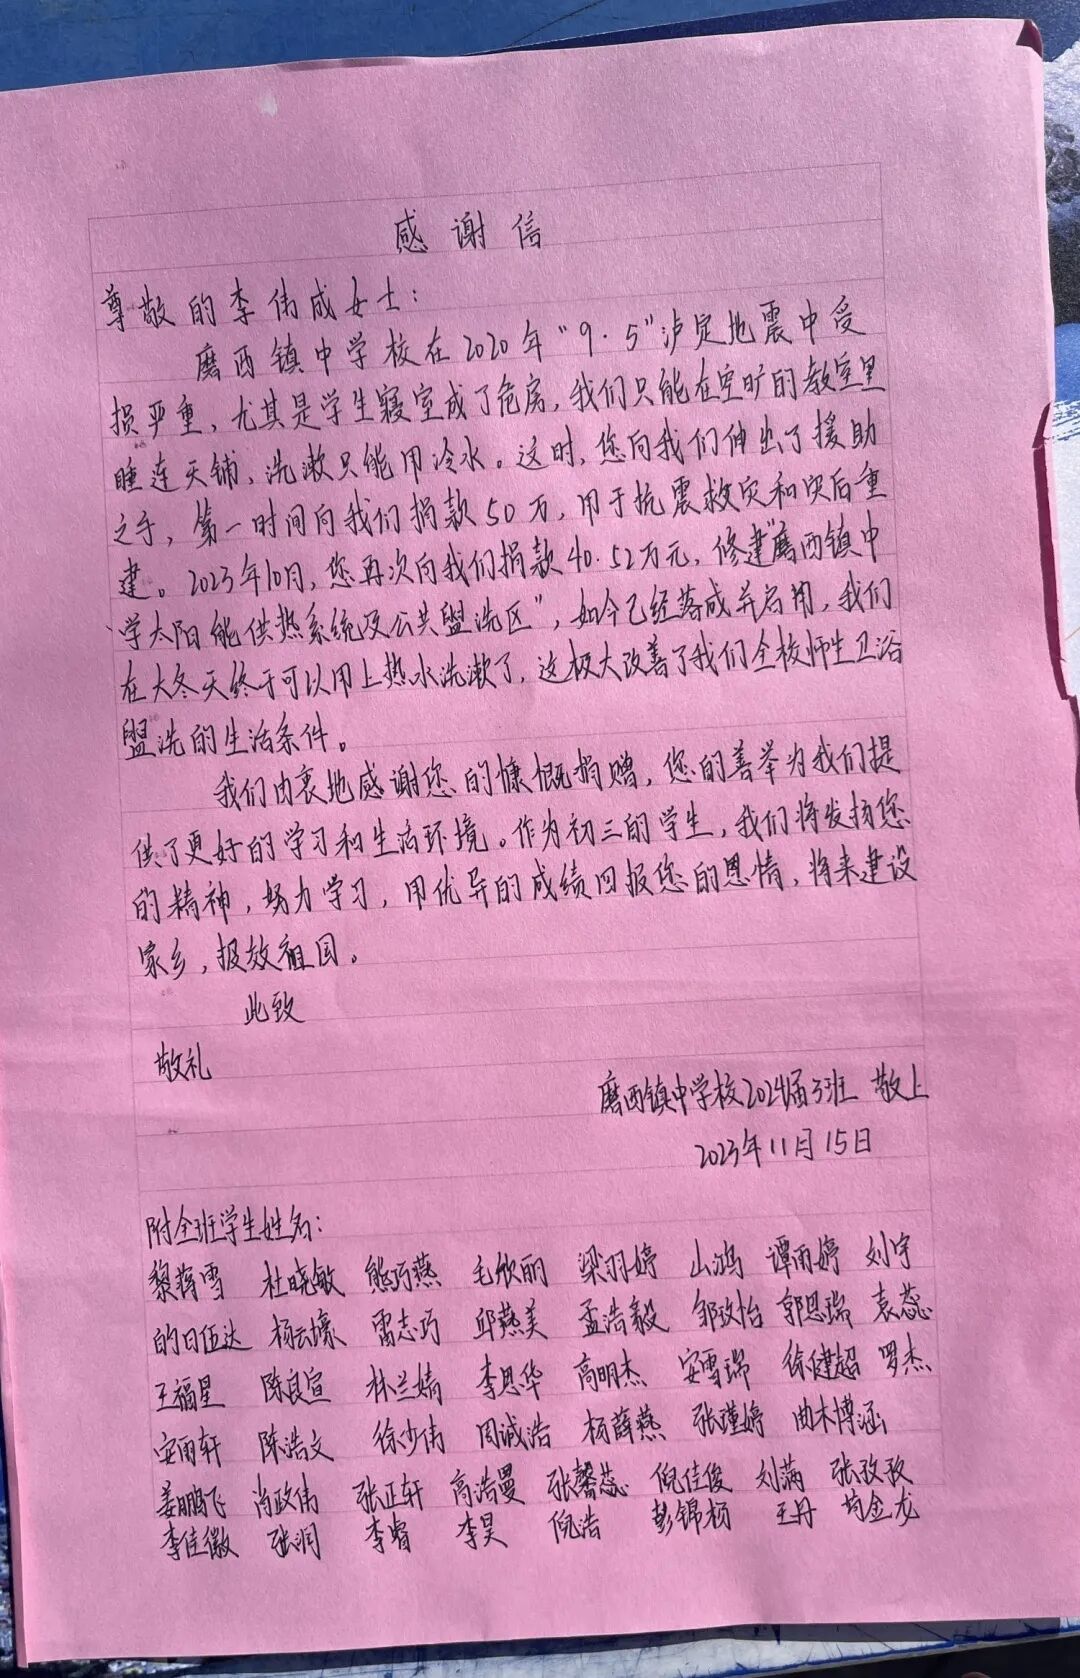 感谢信
尊敬的李伟成女士：
磨西镇中学校在2020年“9·5”泸定地震中受
损严重，尤其是学生寝室成了危房，我们只能在空旷的教室里
睡连天铺，洗漱只能用冷水。这时，您向我们伸出了援助
之手，第一时间向我们捐款50万，用于抗震救灾和灾后重
建。2023年10月，您再次向我们捐款40.52万元，修建“磨西镇中
学太阳能供热系统及公共盥洗区”，如今已经落成并启用，我们
在大冬天终于可以用上热水洗漱了，这极大改善了我们全校师生卫浴
盥洗的生活条件。
我们由衷地感谢您的慷慨捐赠，您的善举为我们提
供了更好的学习和生活环境。作为初三的学生，我们将发扬您
的精神，努力学习，用优异的成绩回报您的恩情，将来建设
家乡，报效祖国。
此致
敬礼
磨西镇中学校2024届3班 敬上
2023年11月15日
附全班学生姓名：
黎蒋雪 杜晓敏 熊巧燕 毛欣丽 梁羽婷 山鸿 谭雨婷 刘宇
的日伍达 杨云濠 雷志巧 邱燕美 孟浩毅 邹玟怡 郭思瑞 袁蕊
王福星 陈良宣 林兰婧 李思华 高明杰 安雪瑞 徐健超 罗杰
安雨轩 陈浩文 徐少伟 周诚浩 杨薛燕 张瑾婷 曲木博涵
姜鹏飞 肖政伟 张正轩 高浩曼 张馨蕊 倪佳俊 刘满 张孜孜
李佳徽 张润 李睿 李昊 倪浩 彭锦杨 王丹 苟金龙